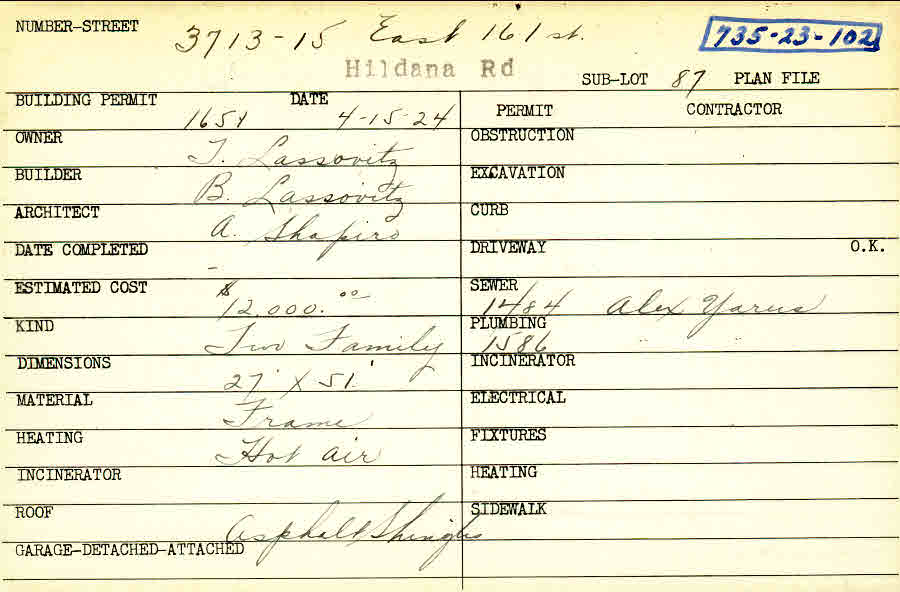 NUMBER-STREET 3713-15 East 161 st. 735-23-102
Hildana Rd
SUB-LOT 87 PLAN FILE
BUILDING PERMIT 1651 DATE 4-15-24
OWNER T. Lassovitz
BUILDER B. Lassovitz
ARCHITECT A. Shapiro
DATE COMPLETED -
ESTIMATED COST $12,000.00
KIND Two Family
DIMENSIONS 27' X 51'
MATERIAL Frame
HEATING Hot air
INCINERATOR
ROOF Asphalt Shingles
GARAGE-DETACHED-ATTACHED
PERMIT CONTRACTOR
OBSTRUCTION
EXCAVATION
CURB
DRIVEWAY O.K.
SEWER 1484 Alex Yarus
PLUMBING 1586
INCINERATOR
ELECTRICAL
FIXTURES
HEATING
SIDEWALK